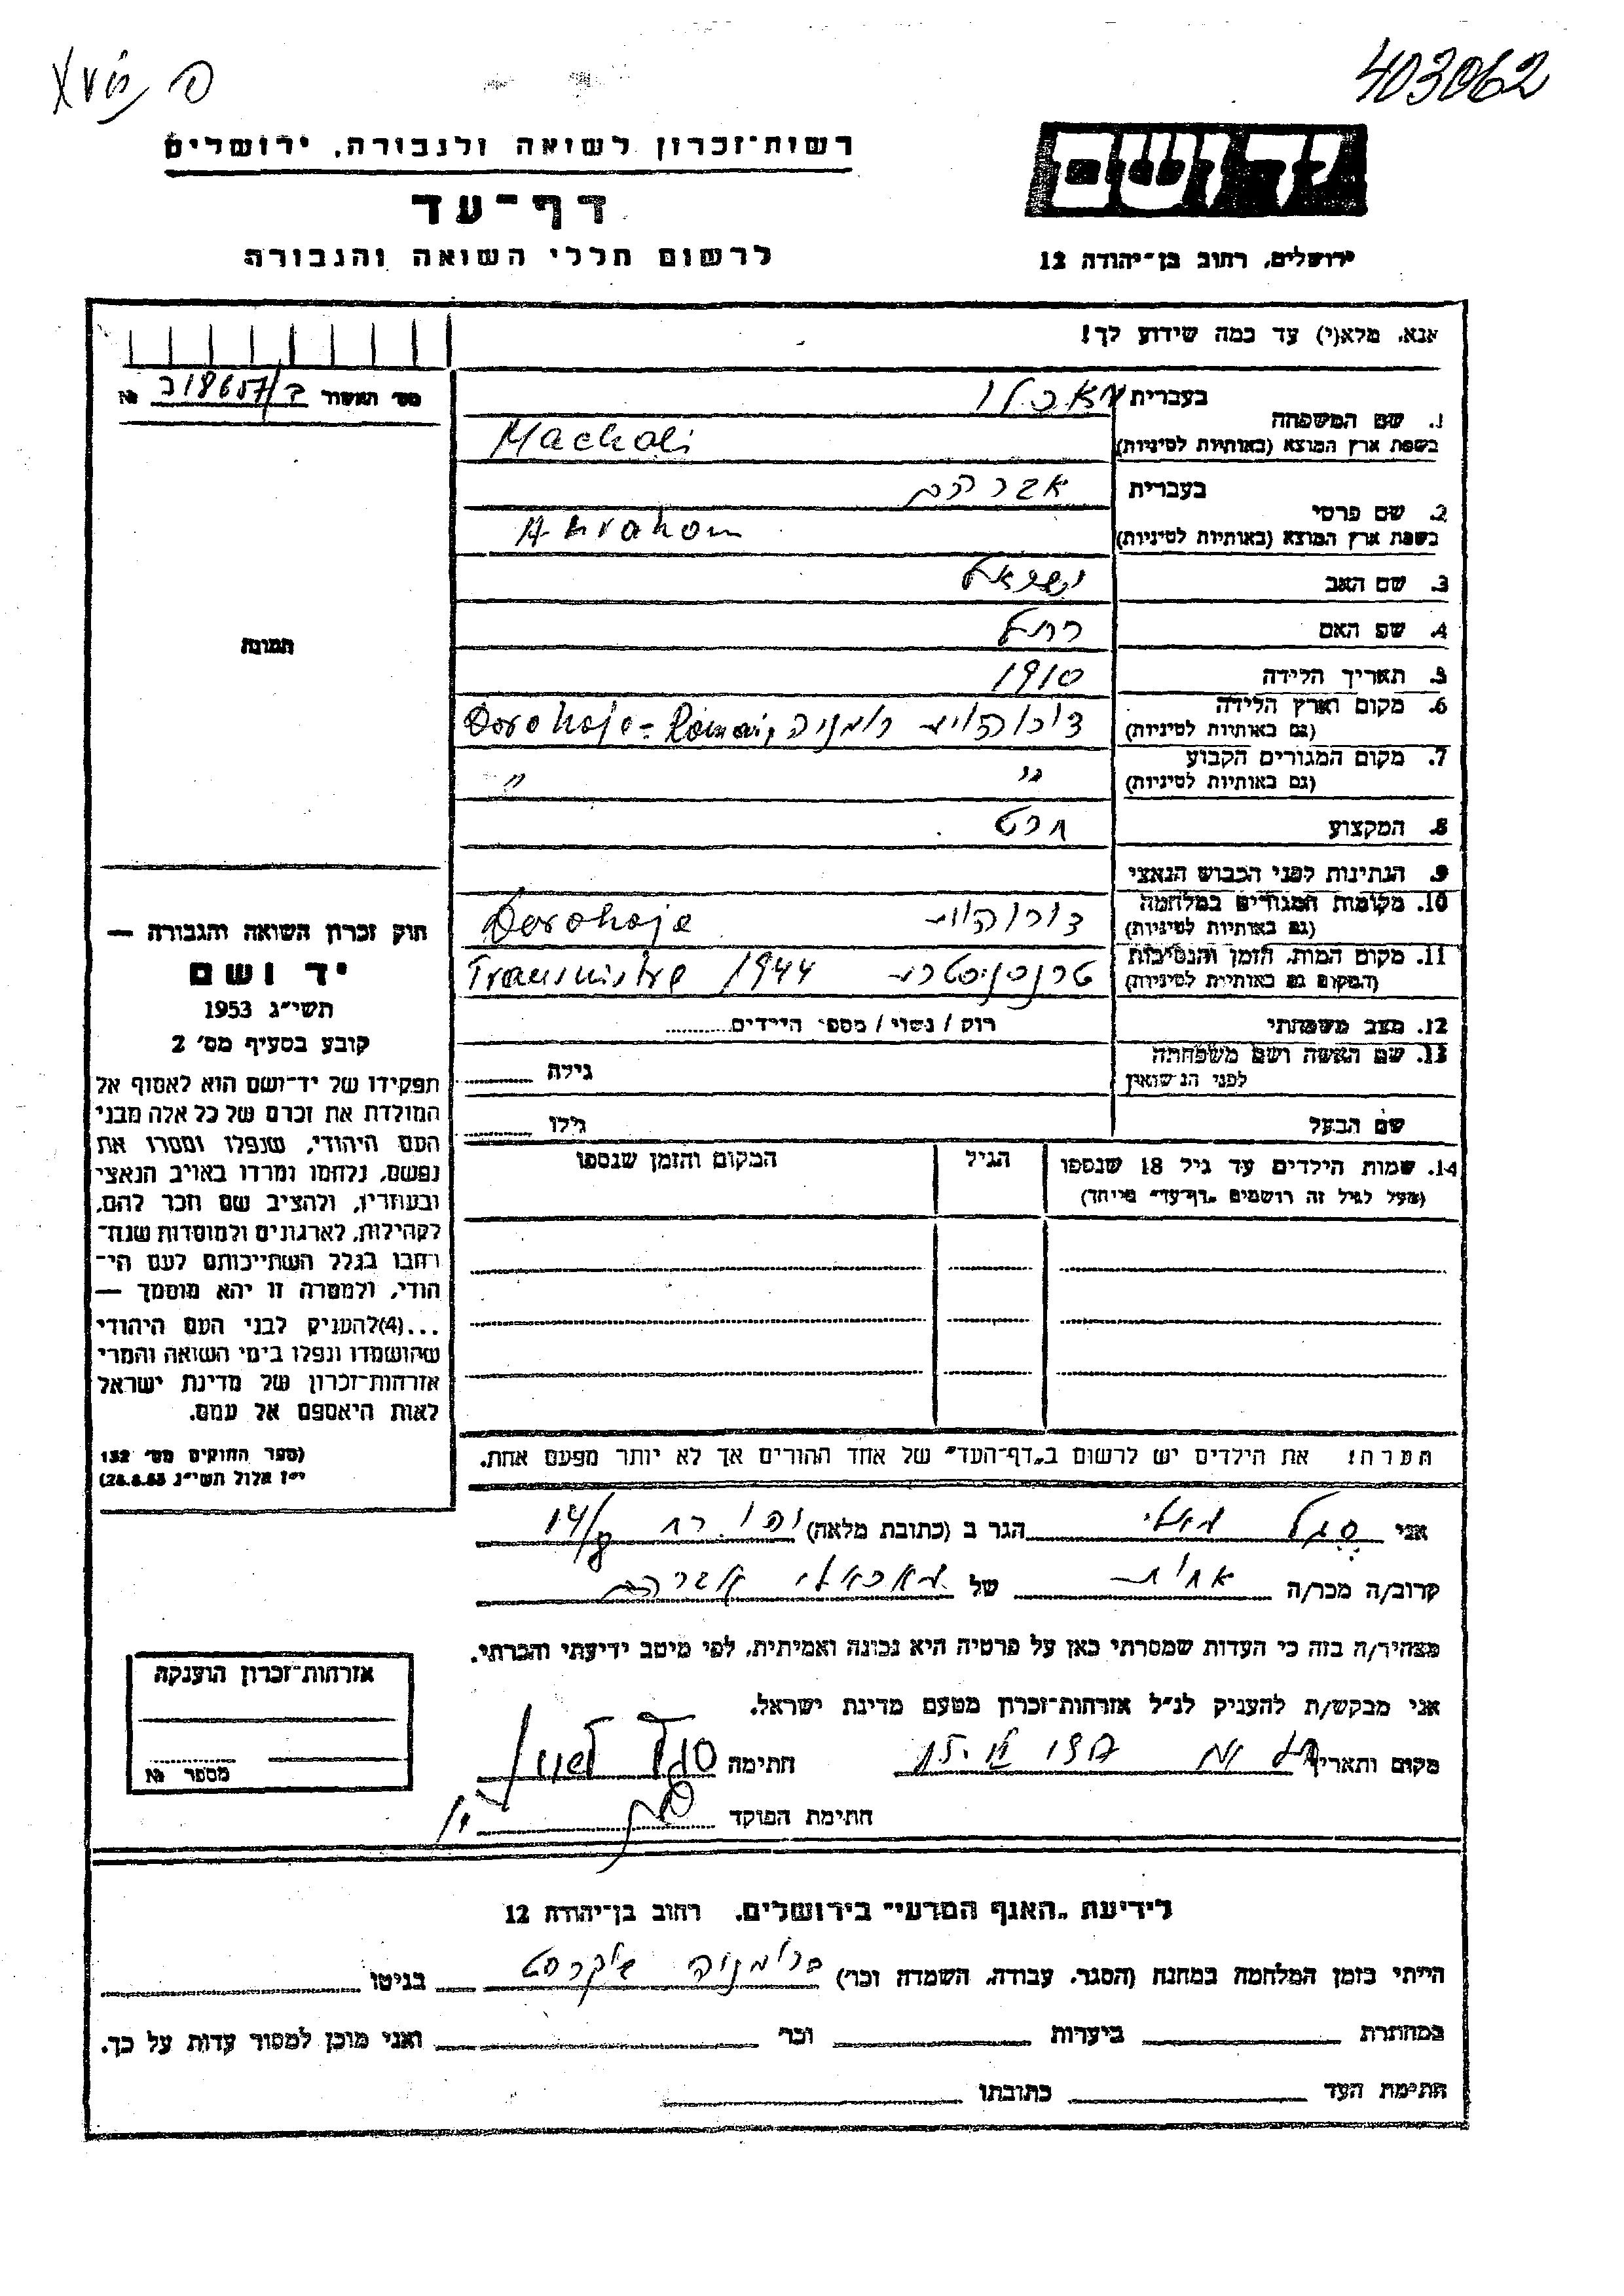 403062
רשות־זכרון לשואה ולגבורה, ירושלים
דף־עד
לרשום חללי השואה והגבורה
יד ושם
ירושלים, רחוב בן־יהודה 12
אנא, מלא(י) עד כמה שידוע לך!
מס׳ האשור №
1. שם המשפחה
בעברית
בשפת ארץ המוצא (באותיות לטיניות) Machali
2. שם פרטי
בעברית אברהם
בשפת ארץ המוצא (באותיות לטיניות) Abraham
3. שם האב ישראל
4. שם האם רחל
5. תאריך הלידה 1910
6. מקום וארץ הלידה
(גם באותיות לטיניות) דורוהוי רומניה Dorohoje =
7. מקום המגורים הקבוע
(גם באותיות לטיניות) " "
8. המקצוע חרט
9. הנתינות לפני הכבוש הנאצי
10. מקומות המגורים במלחמה
(גם באותיות לטיניות) דורוהוי Dorohoje
11. מקום המות, הזמן והנסיבות
(המקום גם באותיות לטיניות) 1944
12. מצב משפחתי רוק / נשוי / מספר הילדים
13. שם האשה ושם משפחתה
לפני הנישואין גילה
שם הבעל גילו
14. שמות הילדים עד גיל 18 שנספו
(מעל לגיל זה רושמים „דף־עד" מיוחד)
הגיל
המקום והזמן שנספו
תמונה
חוק זכרון השואה והגבורה —
יד ושם
תשי״ג 1953
קובע בסעיף מס׳ 2
תפקידו של יד־ושם הוא לאסוף אל
המולדת את זכרם של כל אלה מבני
העם היהודי, שנפלו ומסרו את
נפשם, נלחמו ומרדו באויב הנאצי
ובעוזריו, ולהציב שם וזכר להם,
לקהילות, לארגונים ולמוסדות שנח־
רבו בגלל השתייכותם לעם הי־
הודי, ולמטרה זו יהא מוסמך —
...(4)להעניק לבני העם היהודי
שהושמדו ונפלו בימי השואה והמרי
אזרחות־זכרון של מדינת ישראל
לאות היאספם אל עמם.
(ספר החוקים מס׳ 132
י״ז אלול תשי״ג 28.8.53)
הערה: את הילדים יש לרשום ב„דף־העד" של אחד ההורים אך לא יותר מפעם אחת.
אני סגל הגר ב (כתובת מלאה)
קרוב/ה מכר/ה אחות של אברהם
מצהיר/ה בזה כי העדות שמסרתי כאן על פרטיה היא נכונה ואמיתית, לפי מיטב ידיעתי והכרתי.
אני מבקש/ת להעניק לנ״ל אזרחות־זכרון מטעם מדינת ישראל.
מקום ותאריך חתימה סגל
חתימת הפוקד
אזרחות־זכרון הוענקה
מספר №
לידיעת „האגף המדעי" בירושלים, רחוב בן־יהודה 12
הייתי בזמן המלחמה במחנה (הסגר, עבודה, השמדה וכו׳) ברומניה בוקרסט בגיטו
במחתרת ביערות וכו׳ ואני מוכן למסור עדות על כך.
חתימת העד כתובתו